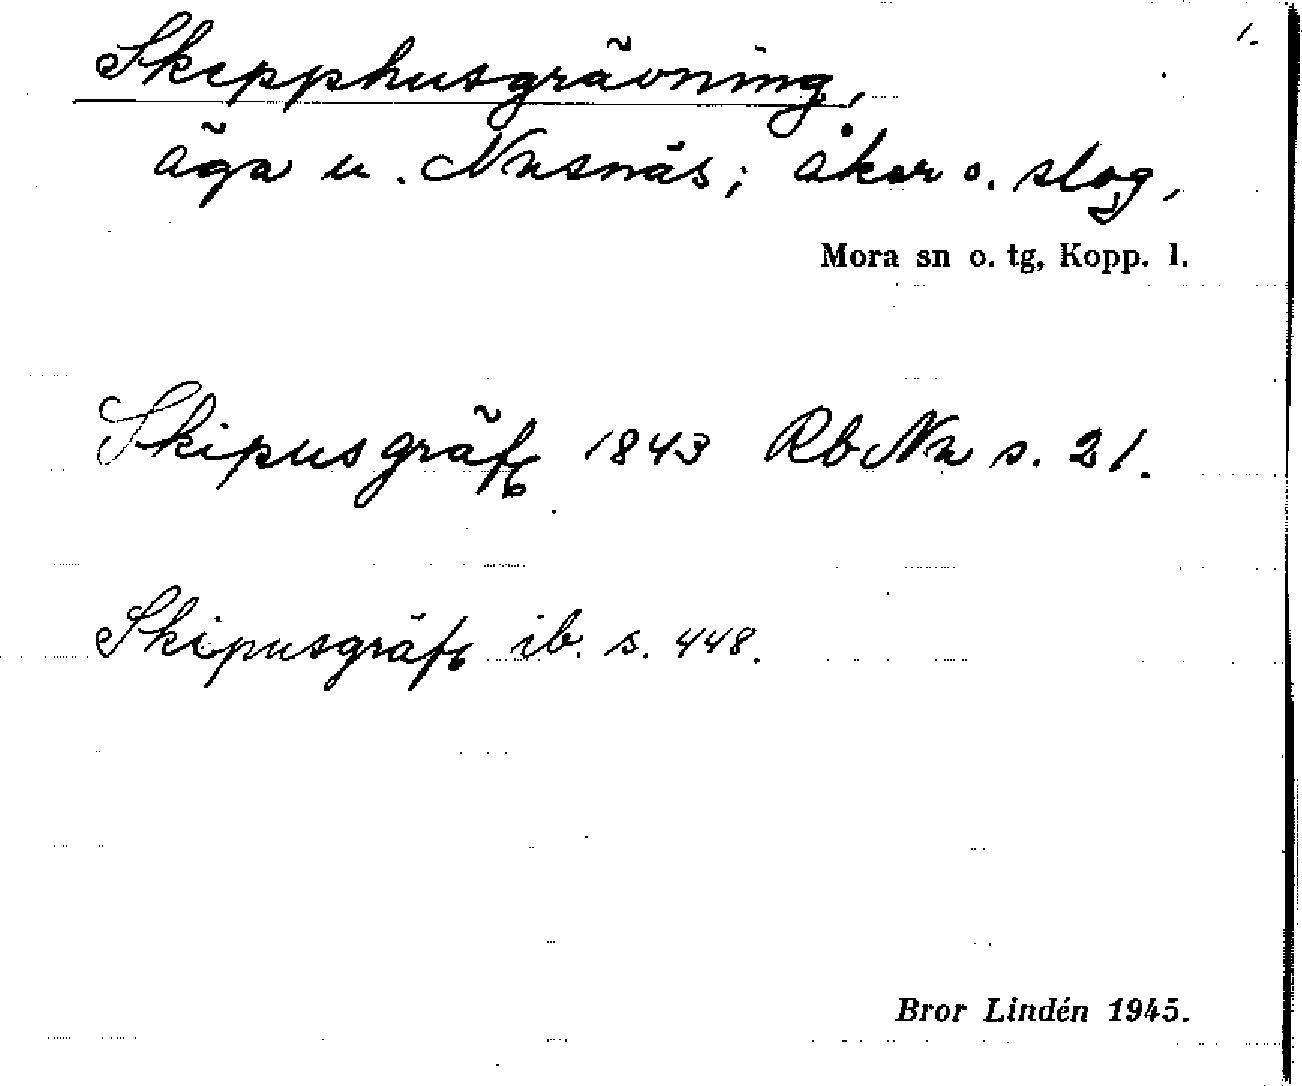 1.
Skepphusgrävning,
äga u. Nusnäs; åker o. slog,
Mora sn o. tg, Kopp. l.
Skipusgräf 1843 Rb Nu s. 21.
Skipusgräf ib. s. 448.
Bror Lindén 1945.